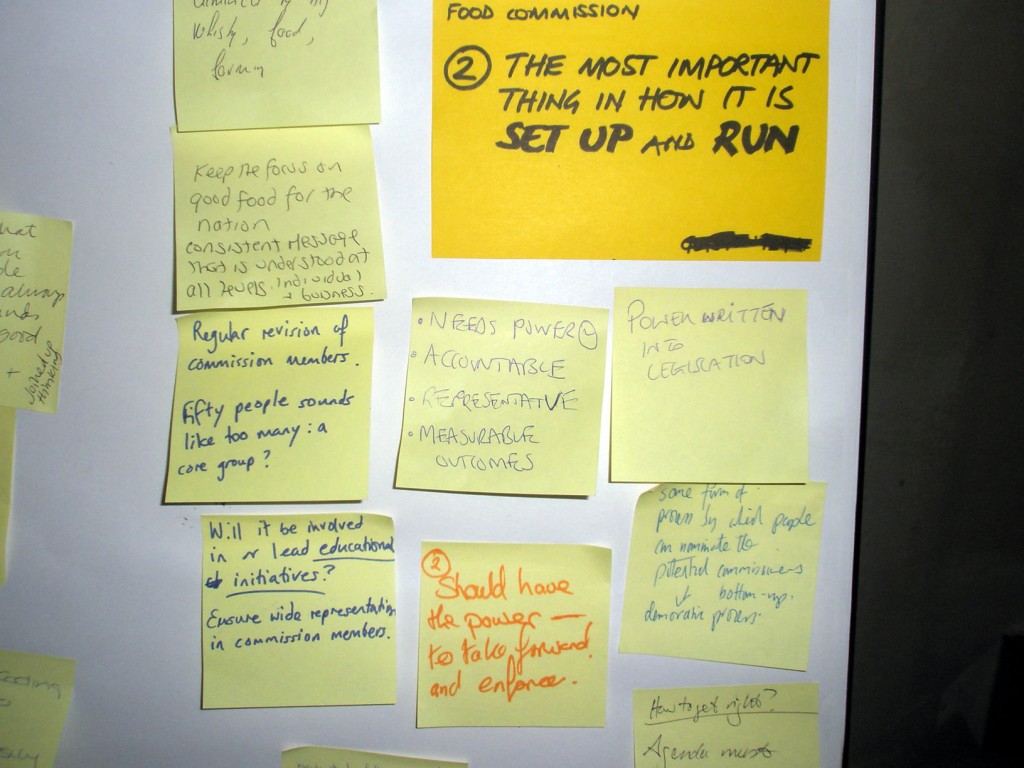 FOOD COMMISSION
② THE MOST IMPORTANT
THING IN HOW IT IS
SET UP AND RUN
whisky, food,
farming
Keep the focus on
good food for the
nation
consistent message
that is understood at
all levels. individual
+ business.
Regular revision of
commission members.
Fifty people sounds
like too many: a
core group?
• NEEDS POWER
• ACCOUNTABLE
• REPRESENTATIVE
• MEASURABLE
OUTCOMES
POWER WRITTEN
INTO
LEGISLATION
Will it be involved
in or lead educational
initiatives?
Ensure wide representation
in commission members.
②
Should have
the power —
to take forward
and enforce.
some form of
process by which people
can nominate the
potential commissioners
bottom-up.
democratic process.
How to get right?
Agenda must
always
good
+ joined up
thinking